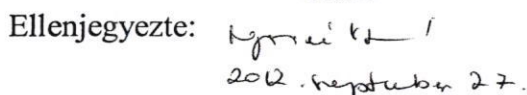 Ellenjegyezte:
2012. szeptember 27.